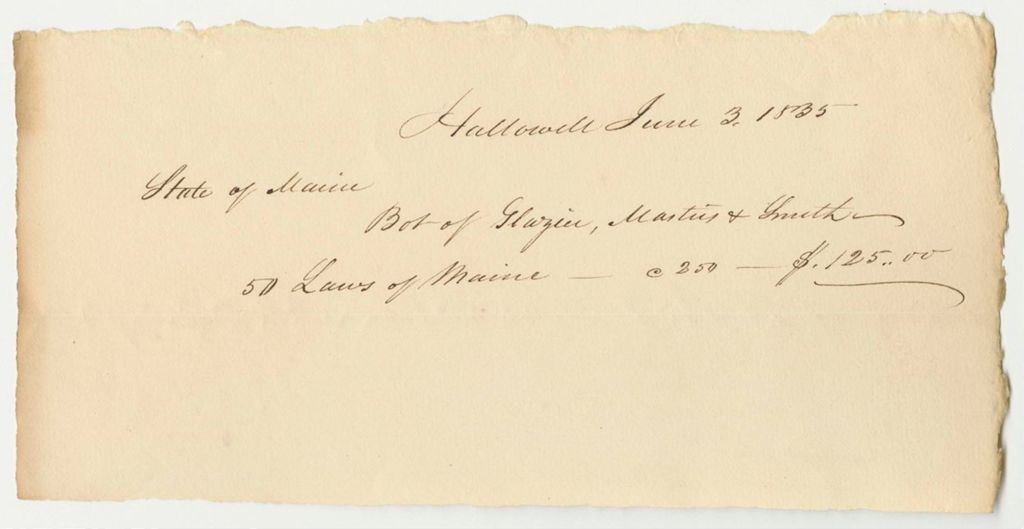 Hallowell June 3, 1835
State of Maine
Bot of Glazier, Masters & Smith
50 Laws of Maine — c 250 — $. 125..00